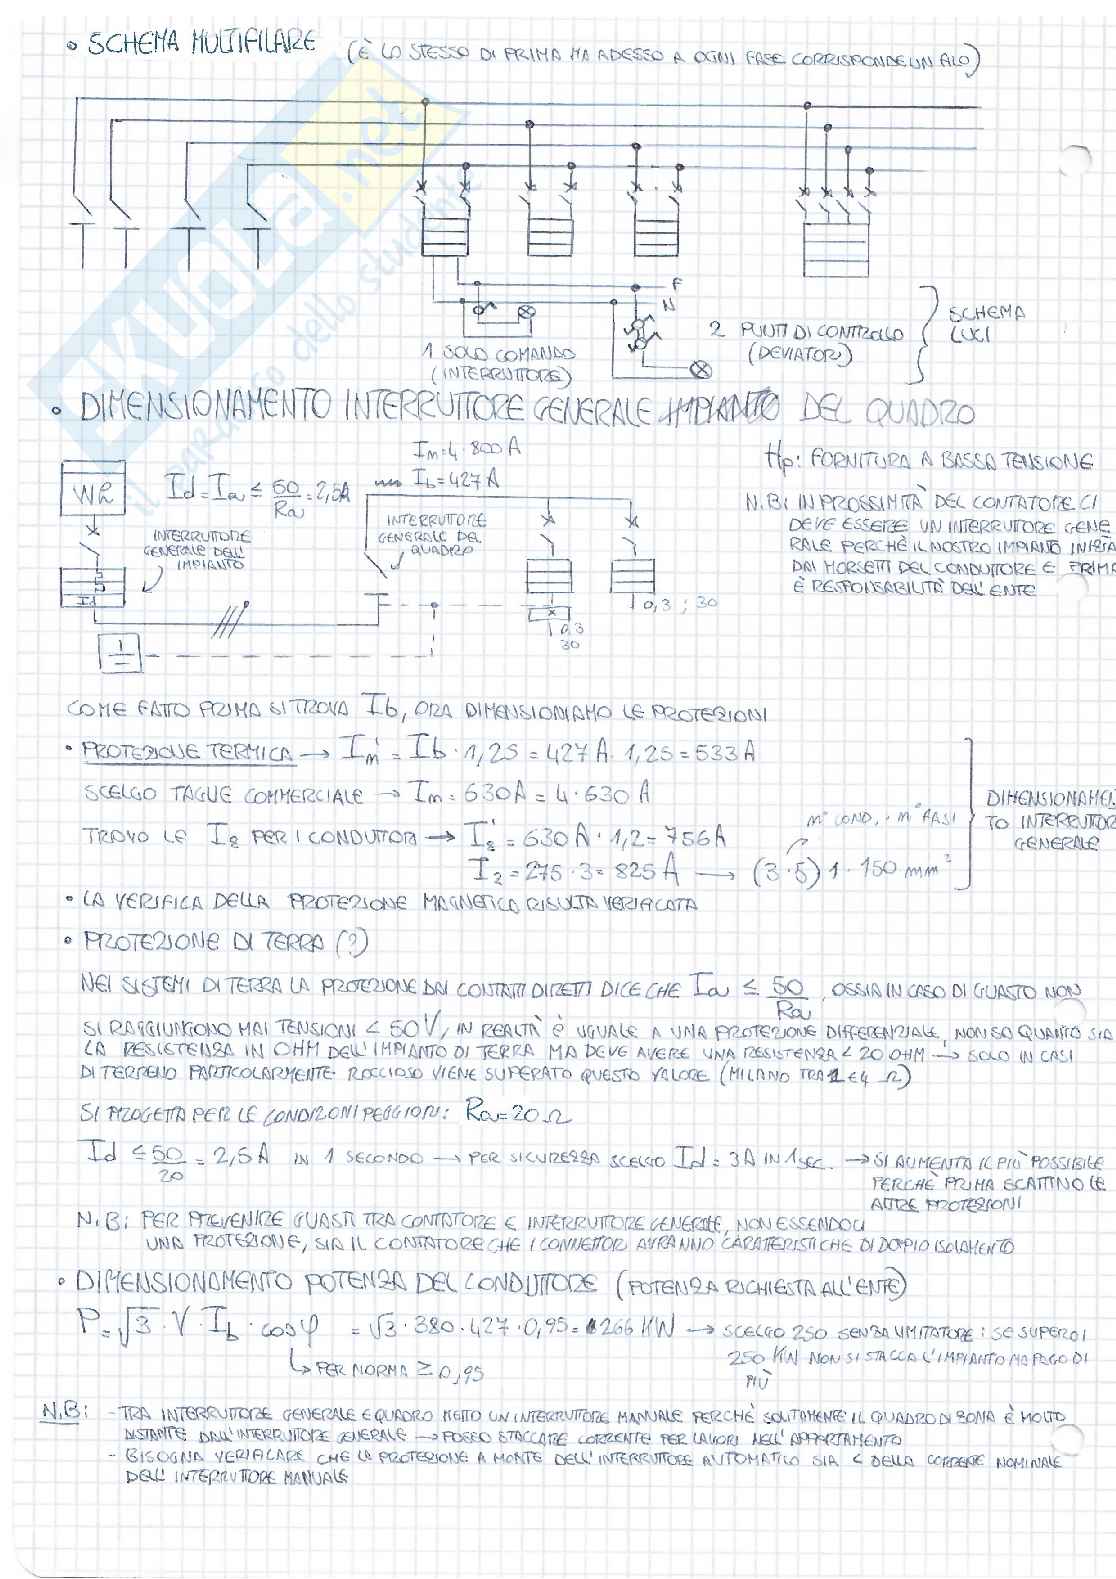 • SCHEMA MULTIFILARE (È LO STESSO DI PRIMA MA ADESSO A OGNI FASE CORRISPONDE UN FILO)
F
N
1 SOLO COMANDO
(INTERRUTTORE)
2 PUNTI DI CONTROLLO
(DEVIATORI)
SCHEMA
LUCI
• DIMENSIONAMENTO INTERRUTTORE GENERALE IMPIANTO DEL QUADRO
Im=4·800A
Ib=427A
Id=Ia≤ 50/Ra = 2,5A
Wh
INTERRUTTORE
GENERALE DELL'
IMPIANTO
Id
INTERRUTTORE
GENERALE DEL
QUADRO
0,3
30
0,3 ; 30
Hp: FORNITURA A BASSA TENSIONE
N.B: IN PROSSIMITÀ DEL CONTATORE CI
DEVE ESSERE UN INTERRUTORE GENE
RALE PERCHÈ IL NOSTRO IMPIANTO INIZIA
DAI MORSETTI DEL CONDUTTORE E PRIMA
È RESPONSABILITÀ DELL'ENTE
COME FATTO PRIMA SI TROVA Ib, ORA DIMENSIONIAMO LE PROTEZIONI
• PROTEZIONE TERMICA → Im' = Ib · 1,25 = 427A · 1,25 = 533A
SCELGO TAGLIE COMMERCIALE → Im = 630A = 4·630 A
TROVO LE Iz PER I CONDUTTORI → Iz' = 630A · 1,2 = 756A
m° COND. · m° FASI
Iz = 275·3 = 825 A → (3·5) 1·150 mm²
DIMENSIONAMEN
TO INTERRUTTOR
GENERALE
• LA VERIFICA DELLA PROTEZIONE MAGNETICA RISULTA VERIFICATA
• PROTEZIONE DI TERRA (?)
NEI SISTEMI DI TERRA LA PROTEZIONE DAI CONTATTI DIRETTI DICE CHE Ia ≤ 50/Ra, OSSIA IN CASO DI GUASTO NON
SI RAGGIUNGONO MAI TENSIONI < 50V, IN REALTÀ È UGUALE A UNA PROTEZIONE DIFFERENZIALE, NON SO QUANTO SIA
LA RESISTENZA IN OHM DELL'IMPIANTO DI TERRA MA DEVE AVERE UNA RESISTENZA < 20 OHM → SOLO IN CASI
DI TERRENO PARTICOLARMENTE ROCCIOSO VIENE SUPERATO QUESTO VALORE (MILANO TRA 1 E 4 Ω)
SI PROGETTA PER LE CONDIZIONI PEGGIORI: Ra = 20 Ω
Id ≤ 50/20 = 2,5 A IN 1 SECONDO → PER SICUREZZA SCELGO Id = 3A IN 1 SEC. → SI AUMENTA IL PIÙ POSSIBILE
PERCHÈ PRIMA SCATTINO LE
ALTRE PROTEZIONI
N.B: PER PREVENIRE GUASTI TRA CONTATORE E INTERRUTTORE GENERALE, NON ESSENDOCI
UNA PROTEZIONE, SIA IL CONTATORE CHE I CONNETTORI AVRANNO CARATTERISTICHE DI DOPPIO ISOLAMENTO
• DIMENSIONAMENTO POTENZA DEL CONDUTTORE (POTENZA RICHIESTA ALL'ENTE)
P = √3 · V · Ib · cosφ = √3 · 380 · 427 · 0,95 = 266 KW → SCELGO 250 SENZA LIMITATORE: SE SUPERO I
250 KW NON SI STACCA L'IMPIANTO MA PAGO DI
PIÙ
↳ PER NORMA ≥ 0,95
N.B: - TRA INTERRUTTORE GENERALE E QUADRO METTO UN INTERRUTTORE MANUALE PERCHÈ SOLITAMENTE IL QUADRO DI ZONA È MOLTO
DISTANTE DALL'INTERRUTTORE GENERALE → POSSO STACCARE CORRENTE PER LAVORI NELL'APPARTAMENTO
- BISOGNA VERIFICARE CHE LA PROTEZIONE A MONTE DELL'INTERRUTTORE AUTOMATICO SIA < DELLA CORRENTE NOMINALE
DELL'INTERRUTTORE MANUALE